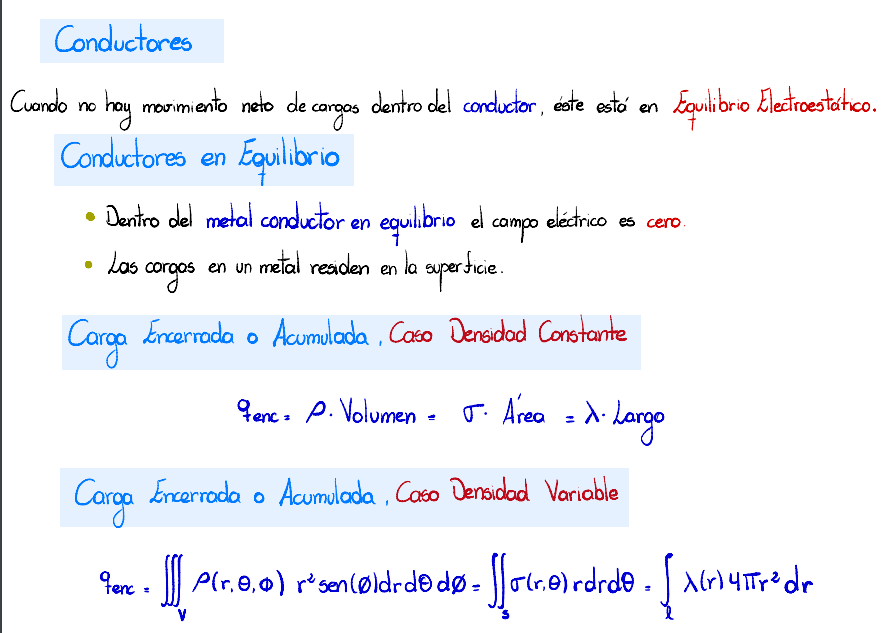 Conductores
Cuando no hay movimiento neto de cargas dentro del conductor, éste está en Equilibrio Electroestático.
Conductores en Equilibrio
• Dentro del metal conductor en equilibrio el campo eléctrico es cero.
• Las cargas en un metal residen en la superficie.
Carga Encerrada o Acumulada, Caso Densidad Constante
qenc = ρ · Volumen = σ · Área = λ · Largo
Carga Encerrada o Acumulada, Caso Densidad Variable
qenc = ∭_V ρ(r,θ,Φ) r² sen(Ø) dr dθ dØ = ∬_S σ(r,θ) r dr dθ = ∫_ℓ λ(r) 4πr² dr